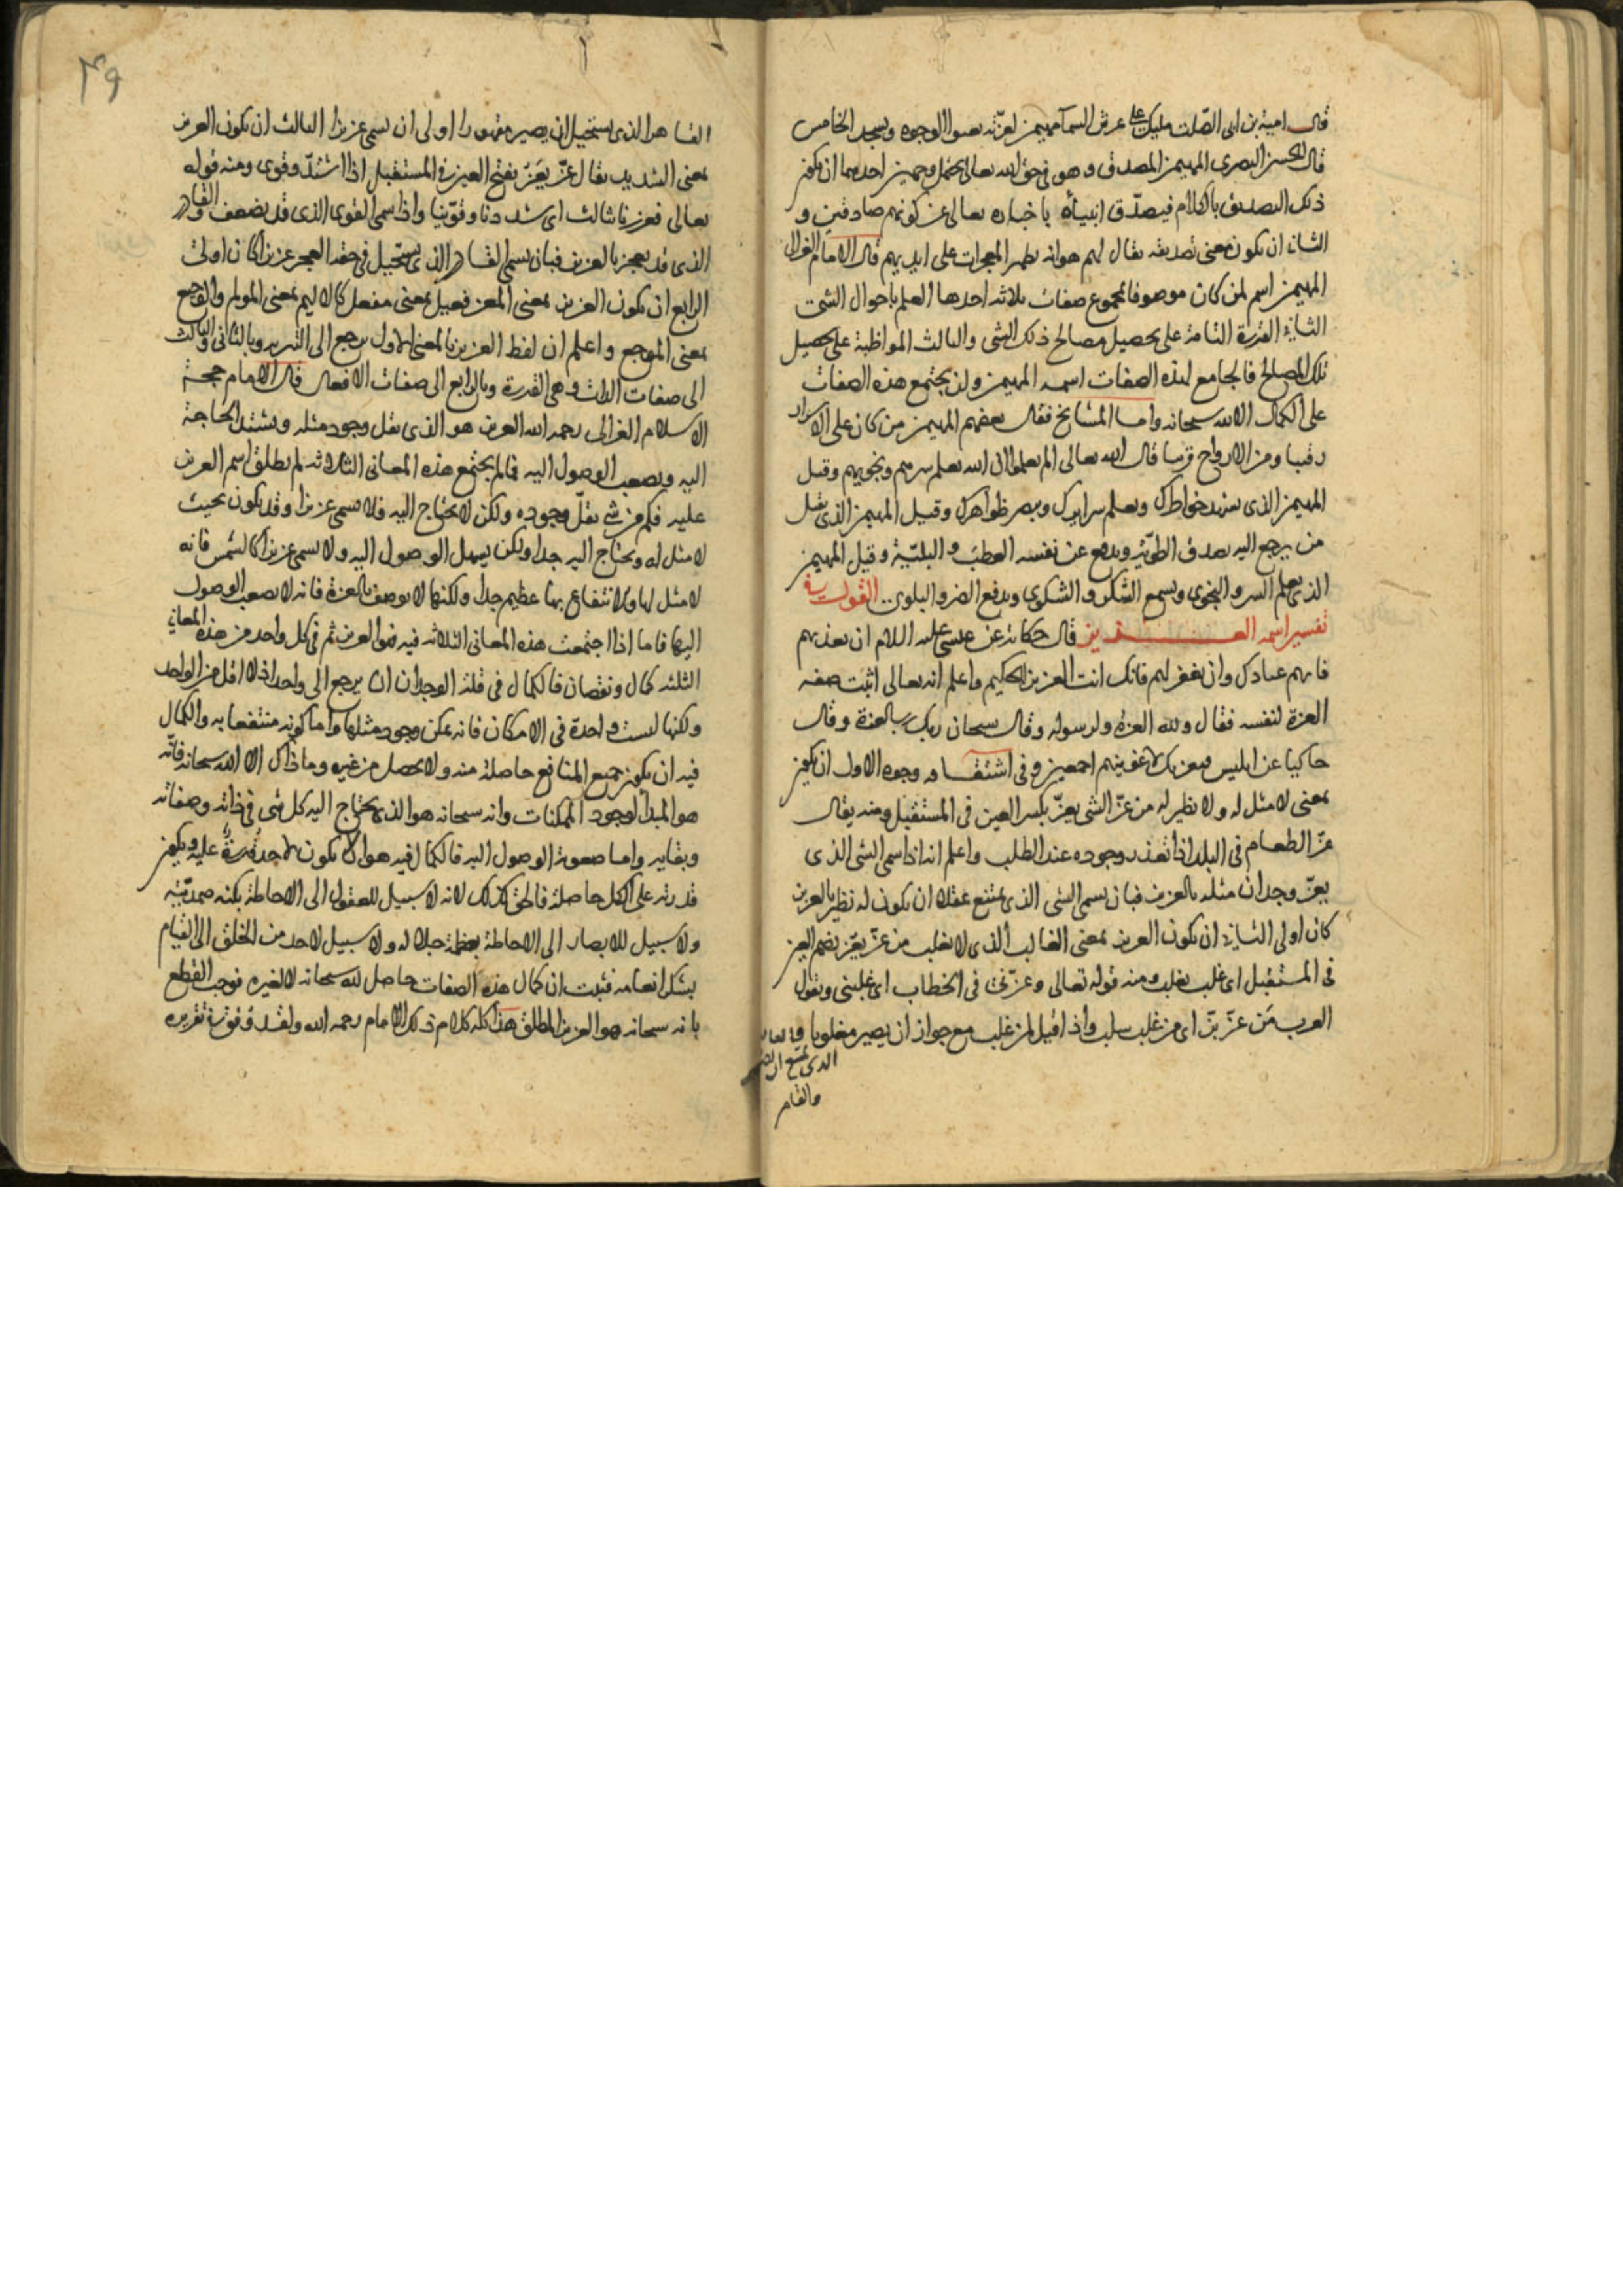 قال امية بن ابى الصّلت مليك على عرش السمآ مهيمن لعزّته تعنوا الوجوه وتسجد الخامس
قال الحسن البصرى المهيمن المصدق وهو فى حق الله تعالى يحتمل وجهين احدهما ان يكون
ذلك التصديق بالكلام فيصدّق انبيآه باخباره تعالى عن كونهم صادقين و
الثانى ان يكون معنى تصديقه تعالى لهم هو انه يظهر المعجزات على ايديهم قال الامام الغزالى
المهيمن اسم لمن كان موصوفا بمجموع صفات ثلاثه احدها العلم باحوال الشئ
الثانى القدرة التامة على تحصيل مصالح ذلك الشى والثالث المواظبة على تحصيل
تلك المصالح فالجامع لهذه الصفات اسمه المهيمن ولن يجتمع هذه الصفات
على الكمال الا لله سبحانه واما المشايخ فقال بعضهم المهيمن من كان على الاسرار
رقيبا ومن الارواح قريبا قال الله تعالى الم يعلموا ان الله يعلم سرهم ونجويهم وقيل
المهيمن الذى يشهد خواطرك ويعلم سرايرك ويبصر ظواهرك وقيل المهيمن الذى يقبل
من يرجع اليه بصدق الطويّة ويدفع عن نفسه العطب والبليّة وقيل المهيمن
الذى يعلم السر والنجوى ويسمع الشكر والشكوى ويدفع الضر والبلوى .. القول فى
تفسير اسمه العزيز قال حكاية عن عيسى عليه السلام ان تعذبهم
فانهم عبادك وان تغفر لهم فانك انت العزيز الحكيم واعلم انه تعالى اثبت صفه
العزة لنفسه فقال ولله العزة ولرسوله وقال سبحان ربك رب العزة وقال
حاكيا عن ابليس فبعزتك لاغوينهم اجمعين وفى اشتقاقه وجوه الاول ان يكون
بمعنى لا مثل له ولا نظير له من عزّ الشى يعزّ بكسر العين فى المستقبل ومنه يقال
عزّ الطعام فى البلد اذا تعذر وجوده عند الطلب واعلم انه اذا سمى الشى الذى
يعزّ وجدان مثله بالعزيز فبان يسمى الشى الذى يمتنع عقلا ان يكون له نظير بالعزيز
كان اولى الثانى ان يكون العزيز بمعنى الغالب الذى لا يغلب من عزّ يعزّ بضم العين
فى المستقبل اى غلب يغلب ومنه قوله تعالى وعزّنى فى الخطاب اى غلبنى وتقول
العرب من عزّ بزّ اى من غلب سلب واذا قيل لمن غلب مع جواز ان يصير مغلوبا
الذى يمتنع ان
والقاهر
القاهر الذى يستحيل ان يصير مقهورا اولى ان يسمى عزيزا الثالث ان يكون العزيز
بمعنى الشديد يقال عزّ يعَزّ بفتح العين فى المستقبل اذا اشتدّ وقوى ومنه قوله
تعالى فعززنا بثالث اى شددنا وقوّينا واذا سمى القوى الذى قد يضعف والقادر
الذى قد يعجز بالعزيز فبان يسمى القادر الذى يستحيل فى حقه العجز عزيزا كان اولى
الرابع ان يكون العزيز بمعنى المعز فعيل بمعنى مفعل كالاليم بمعنى المولم والوجيع
بمعنى الموجع واعلم ان لفظ العزيز بالمعنى الاول يرجع الى التنزيه وبالثانى والثالث
الى صفات الذات وهى القدرة وبالرابع الى صفات الافعال قال الامام حجة
الاسلام الغزالى رحمه الله العزيز هو الذى يقل وجود مثله ويشتد الحاجة
اليه ويصعب الوصول اليه فما لم يجتمع هذه المعانى الثلاثه لم يطلق اسم العزيز
عليه فكم من شى يقلّ وجوده ولكن لا يحتاج اليه فلا يسمى عزيزا وقد يكون بحيث
لا مثل له ويحتاج اليه جدا ولكن يسهل الوصول اليه ولا يسمى عزيزا كالشمس فانه
لا مثل لها والانتفاع بها عظيم جدا ولكنها لا يوصف بالعزة فانه لا يصعب الوصول
اليها فاما اذا اجتمعت هذه المعانى الثلاثه فيه فهو العزيز ثم فى كل واحد من هذه المعانى
الثلثه كمال ونقصان فالكمال فى قلة الوجدان ان يرجع الى واحد اذ لا اقل من الواحد
ولكنها ليست واحدة فى الامكان فانه يمكن وجود مثلها واما كونه منتفعا به والكمال
فيه ان يكون جميع المنافع حاصلة منه ولا يحصل من غيره وما ذاك الا الله سبحانه فانّه
هو المبدأ لوجود الممكنات وانه سبحانه هو الذى يحتاج اليه كل شى فى ذاته وصفاته
وبقايه واما صعوبة الوصول اليه فالكمال فيه هو ان لا يكون لاحد قدرة عليه ويكون
قدرته على الكل حاصلة فالحق كذلك لانه لا سبيل للعقول الى الاحاطة بكنه صمديّته
ولا سبيل للابصار الى الاحاطة بعظمة جلاله ولا سبيل لاحد من الخلق الى القيام
بشكر انعامه فثبت ان كمال هذه الصفات حاصل لله سبحانه لا لغيره فوجب القطع
بانه سبحانه هو العزيز المطلق هذا كله كلام ذلك الامام رحمه الله ولقد وفق فى تقريره